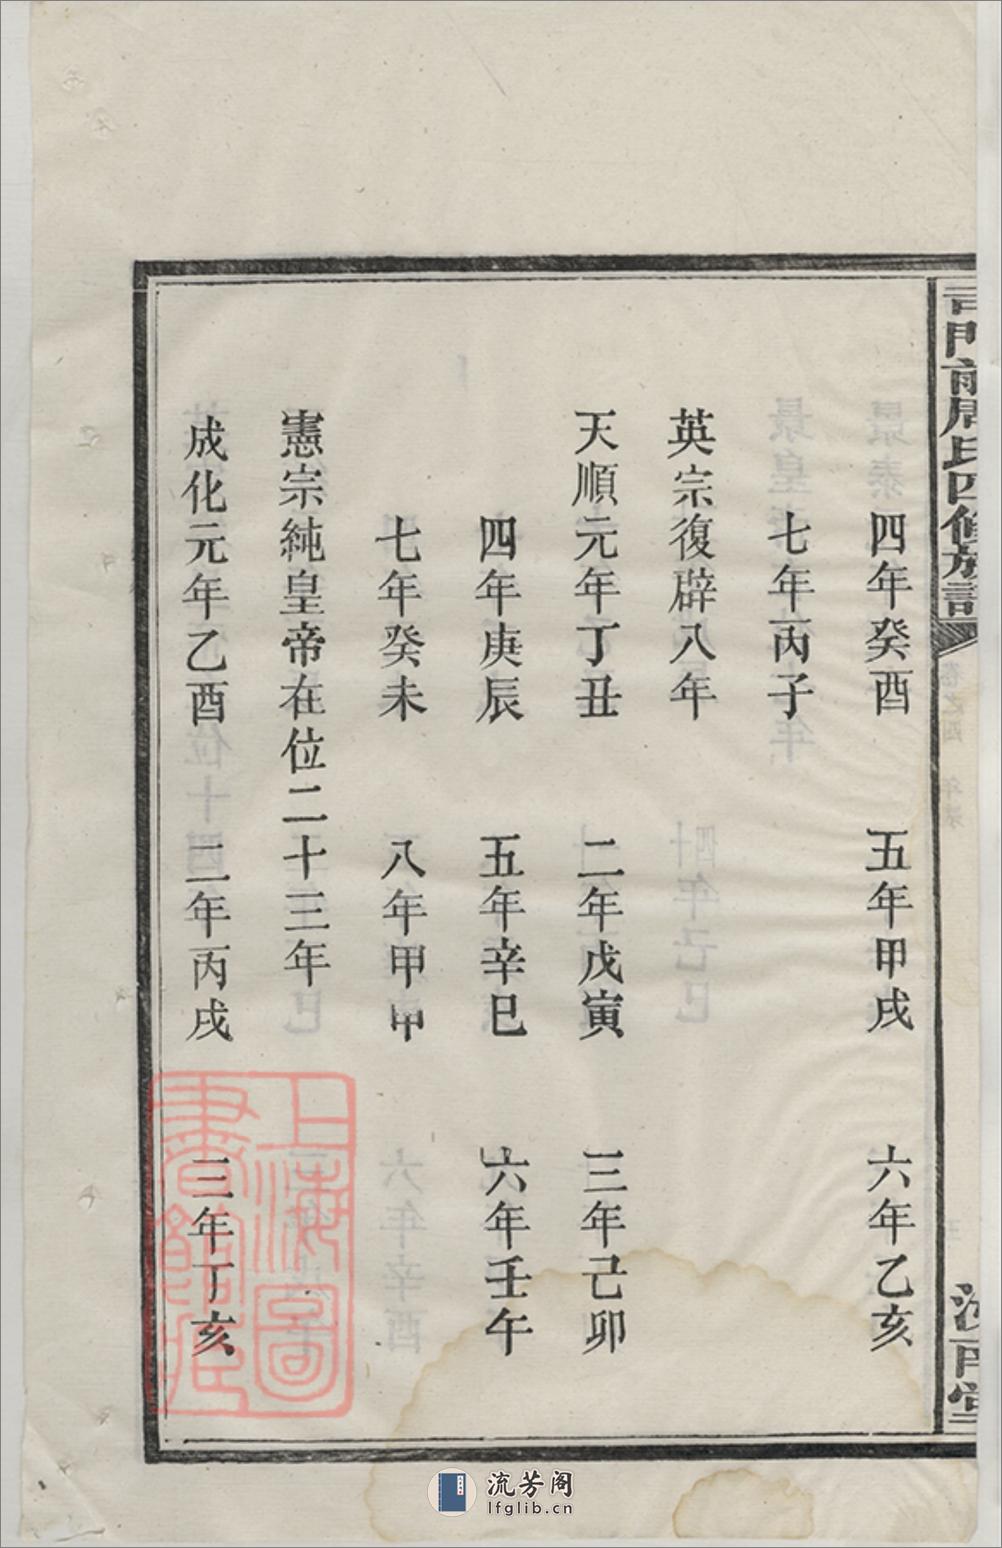 司門前周氏四修族譜
汝南堂
四年癸酉 五年甲戌 六年乙亥
七年丙子
英宗復辟八年
天順元年丁丑 二年戊寅 三年己卯
四年庚辰 五年辛巳 六年壬午
七年癸未 八年甲申
憲宗純皇帝在位二十三年
成化元年乙酉 二年丙戌 三年丁亥
上海圖書館藏
流芳阁
lfglib.cn